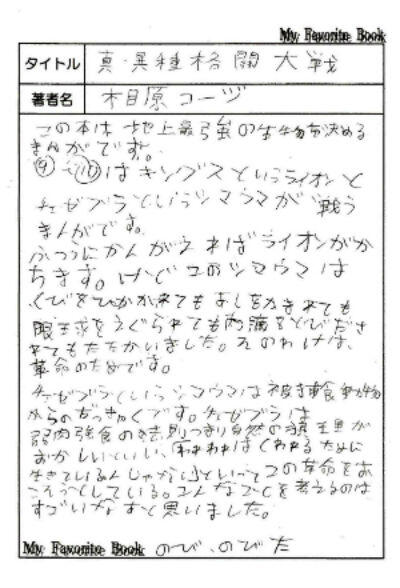 My Favorite Book
タイトル 真・異種格闘大戦
著者名 相原コージ
この本は地上最強の生物を決める
まんがです。
⑨〜⑩はキングスというライオンと
チェゼブラというシマウマが戦う
まんがです。
ふつうにかんがえればライオンがか
ちます。けどこのシマウマは
くびをひかかれてもあしをかまれても
眼球をえぐられても内臓をとびださ
れてもたたかいました。そのわけは、
革命のためです。
チェゼブラというシマウマは被捕食動物
からのだっきゃくです。チェゼブラは
弱肉強食の法則つまり自然の摂理が
おかしいといい、われわれはくわれるために
生きているんじゃないといってこの革命をお
こそうとしている。こんなことを考えるのは
すごいなあと思いました。
My Favorite Book のび、のびた